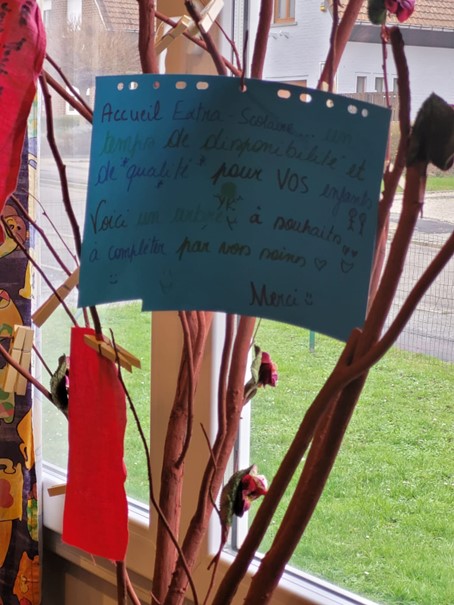 Accueil Extra-Scolaire... un
temps de disponibilité et
de "qualité" pour VOS enfants
Voici un arbre à souhaits
à compléter par vos soins
Merci